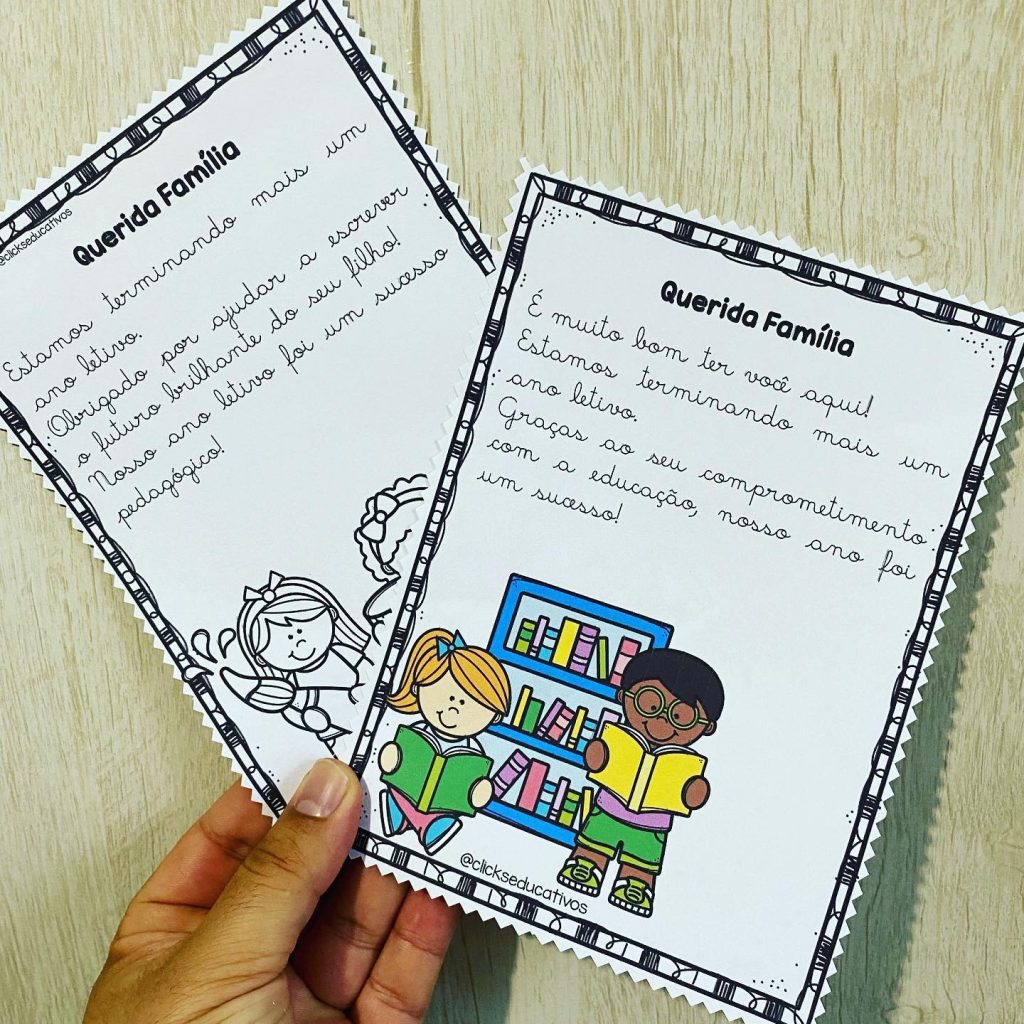 @clickseducativos
Querida Família
Estamos terminando mais um
ano letivo.
Obrigado por ajudar a escrever
o futuro brilhante do seu filho!
Nosso ano letivo foi um sucesso
pedagógico!
Querida Família
É muito bom ter você aqui!
Estamos terminando mais um
ano letivo.
Graças ao seu comprometimento
com a educação, nosso ano foi
um sucesso!
@clickseducativos